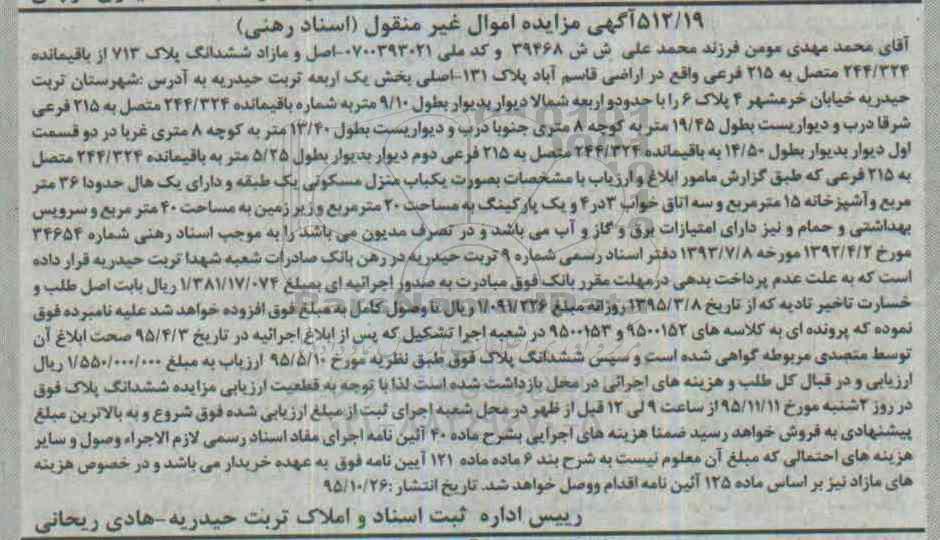 ۵۱۲/۱۹آگهی مزایده اموال غیر منقول (اسناد رهنی)
آقای محمد مهدی مومن فرزند محمد علی ش ش ۳۹۴۶۸ و کد ملی ۰۷۰۰۳۹۳۰۲۱-اصل و مازاد ششدانگ پلاک ۷۱۳ از باقیمانده
۲۴۴/۳۲۴ متصل به ۲۱۵ فرعی واقع در اراضی قاسم آباد پلاک ۱۳۱-اصلی بخش یک اربعه تربت حیدریه به آدرس :شهرستان تربت
حیدریه خیابان خرمشهر ۴ پلاک ۶ را با حدودو اربعه شمالا دیوار بدیوار بطول ۹/۱۰ متربه شماره باقیمانده ۲۴۴/۳۲۴ متصل به ۲۱۵ فرعی
شرقا درب و دیواریست بطول ۱۹/۴۵ متر به کوچه ۸ متری جنوبا درب و دیواریست بطول ۱۳/۴۰ متر به کوچه ۸ متری غربا در دو قسمت
اول دیوار بدیوار بطول ۱۴/۵۰ به باقیمانده ۲۴۴/۳۲۴ متصل به ۲۱۵ فرعی دوم دیوار بدیوار بطول ۵/۲۵ متر به باقیمانده ۲۴۴/۳۲۴ متصل
به ۲۱۵ فرعی که طبق گزارش مامور ابلاغ و ارزیاب با مشخصات بصورت یکباب منزل مسکونی یک طبقه و دارای یک هال حدودا ۳۶ متر
مربع و آشپزخانه ۱۵ مترمربع و سه اتاق خواب ۳در۴ و یک پارکینگ به مساحت ۲۰ مترمربع و زیر زمین به مساحت ۴۰ متر مربع و سرویس
بهداشتی و حمام و نیز دارای امتیازات برق و گاز و آب می باشد و در تصرف مدیون می باشد را به موجب اسناد رهنی شماره ۳۴۶۵۴
مورخ ۱۳۹۲/۴/۲ مورخه ۱۳۹۳/۷/۸ دفتر اسناد رسمی شماره ۹ تربت حیدریه در رهن بانک صادرات شعبه شهدا تربت حیدریه قرار داده
است که به علت عدم پرداخت بدهی درمهلت مقرر بانک فوق مبادرت به صدور اجرائیه ای بمبلغ ۱/۳۸۱/۱۷/۰۷۴ ریال بابت اصل طلب و
خسارت تاخیر تادیه که از تاریخ ۱۳۹۵/۳/۸ روزانه مبلغ ۱/۰۹۱/۲۲۶ ریال تا وصول کامل به مبلغ فوق افزوده خواهد شد علیه نامبرده فوق
نموده که پرونده ای به کلاسه های ۹۵۰۰۱۵۲ و ۹۵۰۰۱۵۳ در شعبه اجرا تشکیل که پس از ابلاغ اجرائیه در تاریخ ۹۵/۴/۳ صحت ابلاغ آن
توسط متصدی مربوطه گواهی شده است و سپس ششدانگ پلاک فوق طبق نظریه مورخ ۹۵/۵/۱۰ ارزیاب به مبلغ ۱/۵۵۰/۰۰۰/۰۰۰ ریال
ارزیابی و در قبال کل طلب و هزینه های اجرائی در محل بازداشت شده است لذا با توجه به قطعیت ارزیابی مزایده ششدانگ پلاک فوق
در روز ۲شنبه مورخ ۹۵/۱۱/۱۱ از ساعت ۹ لی ۱۲ قبل از ظهر در محل شعبه اجرای ثبت از مبلغ ارزیابی شده فوق شروع و به بالاترین مبلغ
پیشنهادی به فروش خواهد رسید ضمنا هزینه های اجرایی بشرح ماده ۴۰ آئین نامه اجرای مفاد اسناد رسمی لازم الاجراء وصول و سایر
هزینه های احتمالی که مبلغ آن معلوم نیست به شرح بند ۶ ماده ماده ۱۲۱ آیین نامه فوق به عهده خریدار می باشد و در خصوص هزینه
های مازاد نیز بر اساس ماده ۱۲۵ آئین نامه اقدام ووصل خواهد شد. تاریخ انتشار :۹۵/۱۰/۲۶
رییس اداره ثبت اسناد و املاک تربت حیدریه-هادی ریحانی